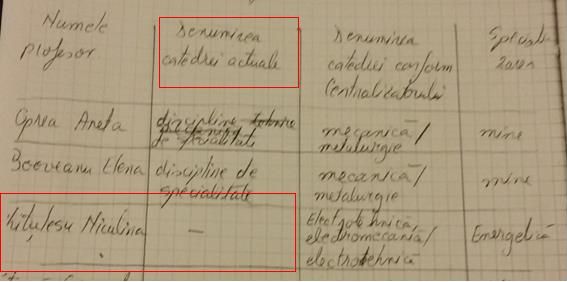 Numele Denumirea Denumirea Speciali-
profesor catedrei actuale catedrei conform zarea
Centralizatorului
Oprea Aneta discipline tehnice mecanică/ mine
de specialitate metalurgie
Booveanu Elena discipline de mecanică/ mine
specialitate metalurgie
hițulesu Niculina — Electrotehnică, Energetică
electromecanică/
electrotehnică